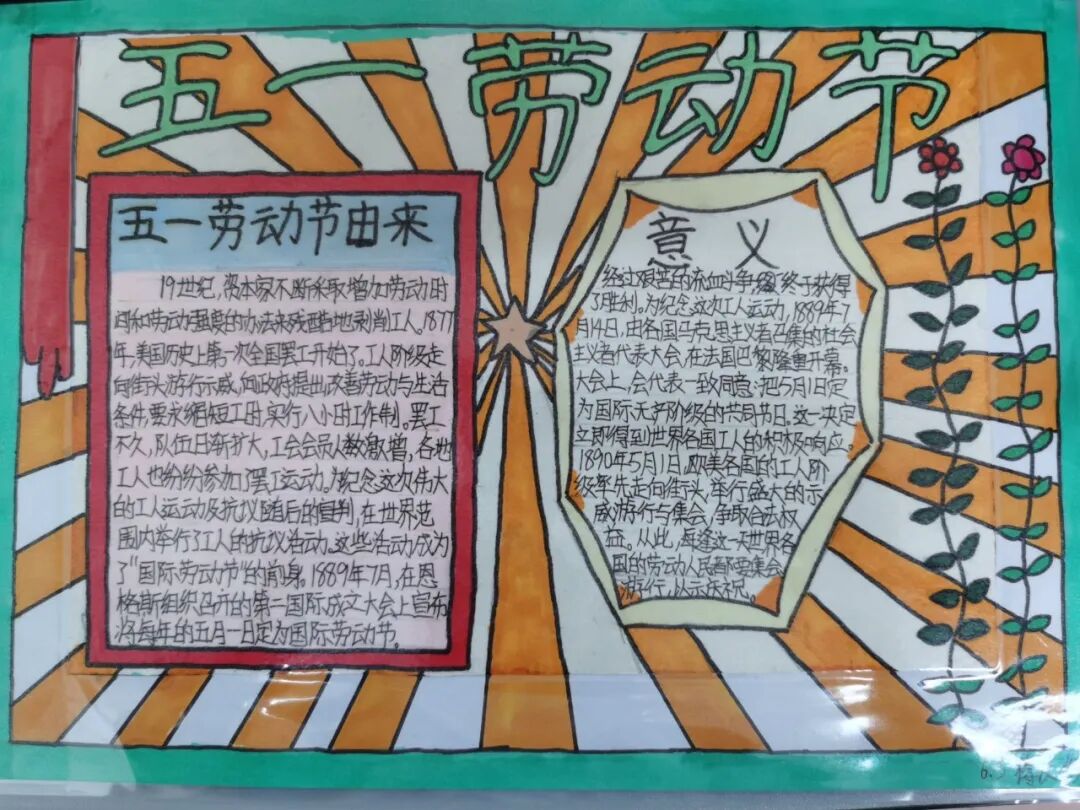 五一劳动节
五一劳动节由来
19世纪,资本家不断采取增加劳动时
间和劳动强度的办法来残酷地剥削工人。1877
年,美国历史上第一次全国罢工开始了。工人阶级走
向街头游行示威,向政府提出改善劳动与生活
条件,要求缩短工时,实行八小时工作制。罢工
不久,队伍日渐扩大,工会会员人数激增,各地
工人也纷纷参加了罢工运动。为纪念这次伟大
的工人运动及抗议随后的宣判,在世界范
围内举行了工人的抗议活动。这些活动成为
了“国际劳动节”的前身。1889年7月,在恩
格斯组织召开的第二国际成立大会上宣布
将每年的五月一日定为国际劳动节。
意义
经过艰苦的流血斗争,终于获得
了胜利。为纪念这次工人运动,1889年7
月14日,由各国马克思主义者召集的社会
主义者代表大会,在法国巴黎隆重开幕。
大会上,会代表一致同意:把5月1日定
为国际无产阶级的共同节日。这一决定
立即得到世界各国工人的积极响应。
1890年5月1日,欧美各国的工人阶
级率先走向街头,举行盛大的示
威游行与集会,争取合法权
益。从此,每逢这一天世界各
国的劳动人民都要集会、
游行,以示庆祝。
6.3